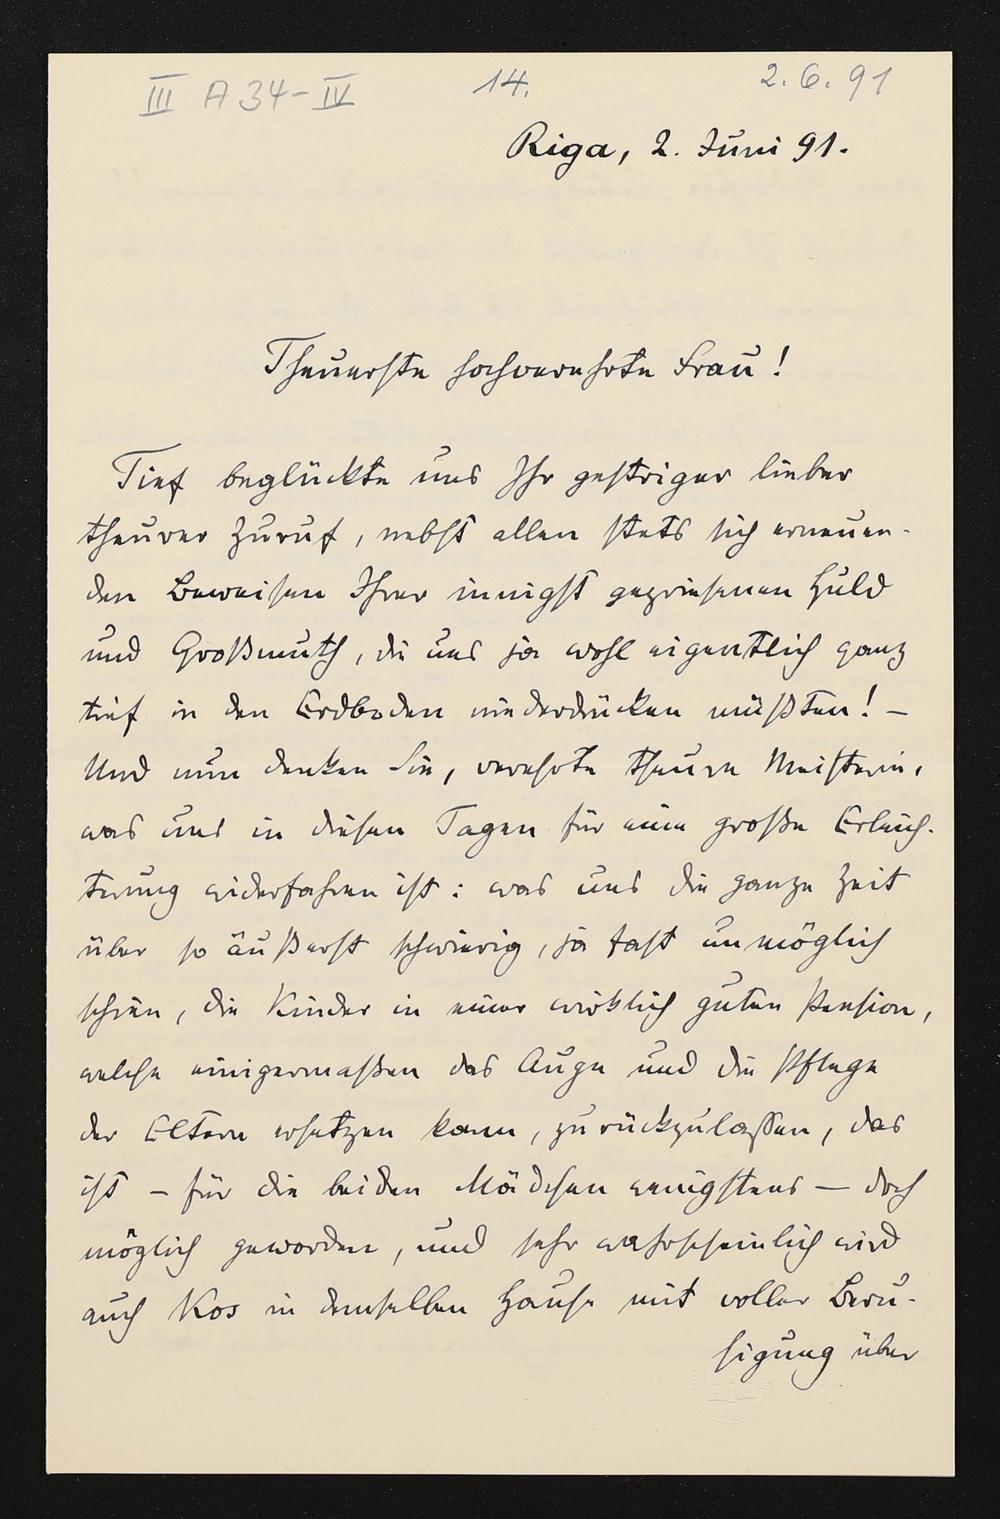 III A 34-IV 14. 2.6.91
Riga, 2. Juni 91.
Theuerste hochverehrte Frau!
Tief beglückte uns Ihr gestriger lieber
theurer Zuruf, nebst allen stets sich erneuen-
den Beweisen Ihrer innigst gepriesenen Huld
und Großmuth, die uns ja wohl eigentlich ganz
tief in den Erdboden niederdrücken müßten! —
Und nun denken Sie, verehrte theure Meisterin,
was uns in diesen Tagen für eine große Erleich-
terung widerfahren ist: was uns die ganze Zeit
über so äußerst schwierig, ja fast unmöglich
schien, die Kinder in einer wirklich guten Pension,
welche einigermaßen das Auge und die Pflege
der Eltern ersetzen kann, zurückzulassen, das
ist — für die beiden Mädchen wenigstens — doch
möglich geworden, und sehr wahrscheinlich wird
auch Kos in demselben Hause mit voller Beru-
higung über